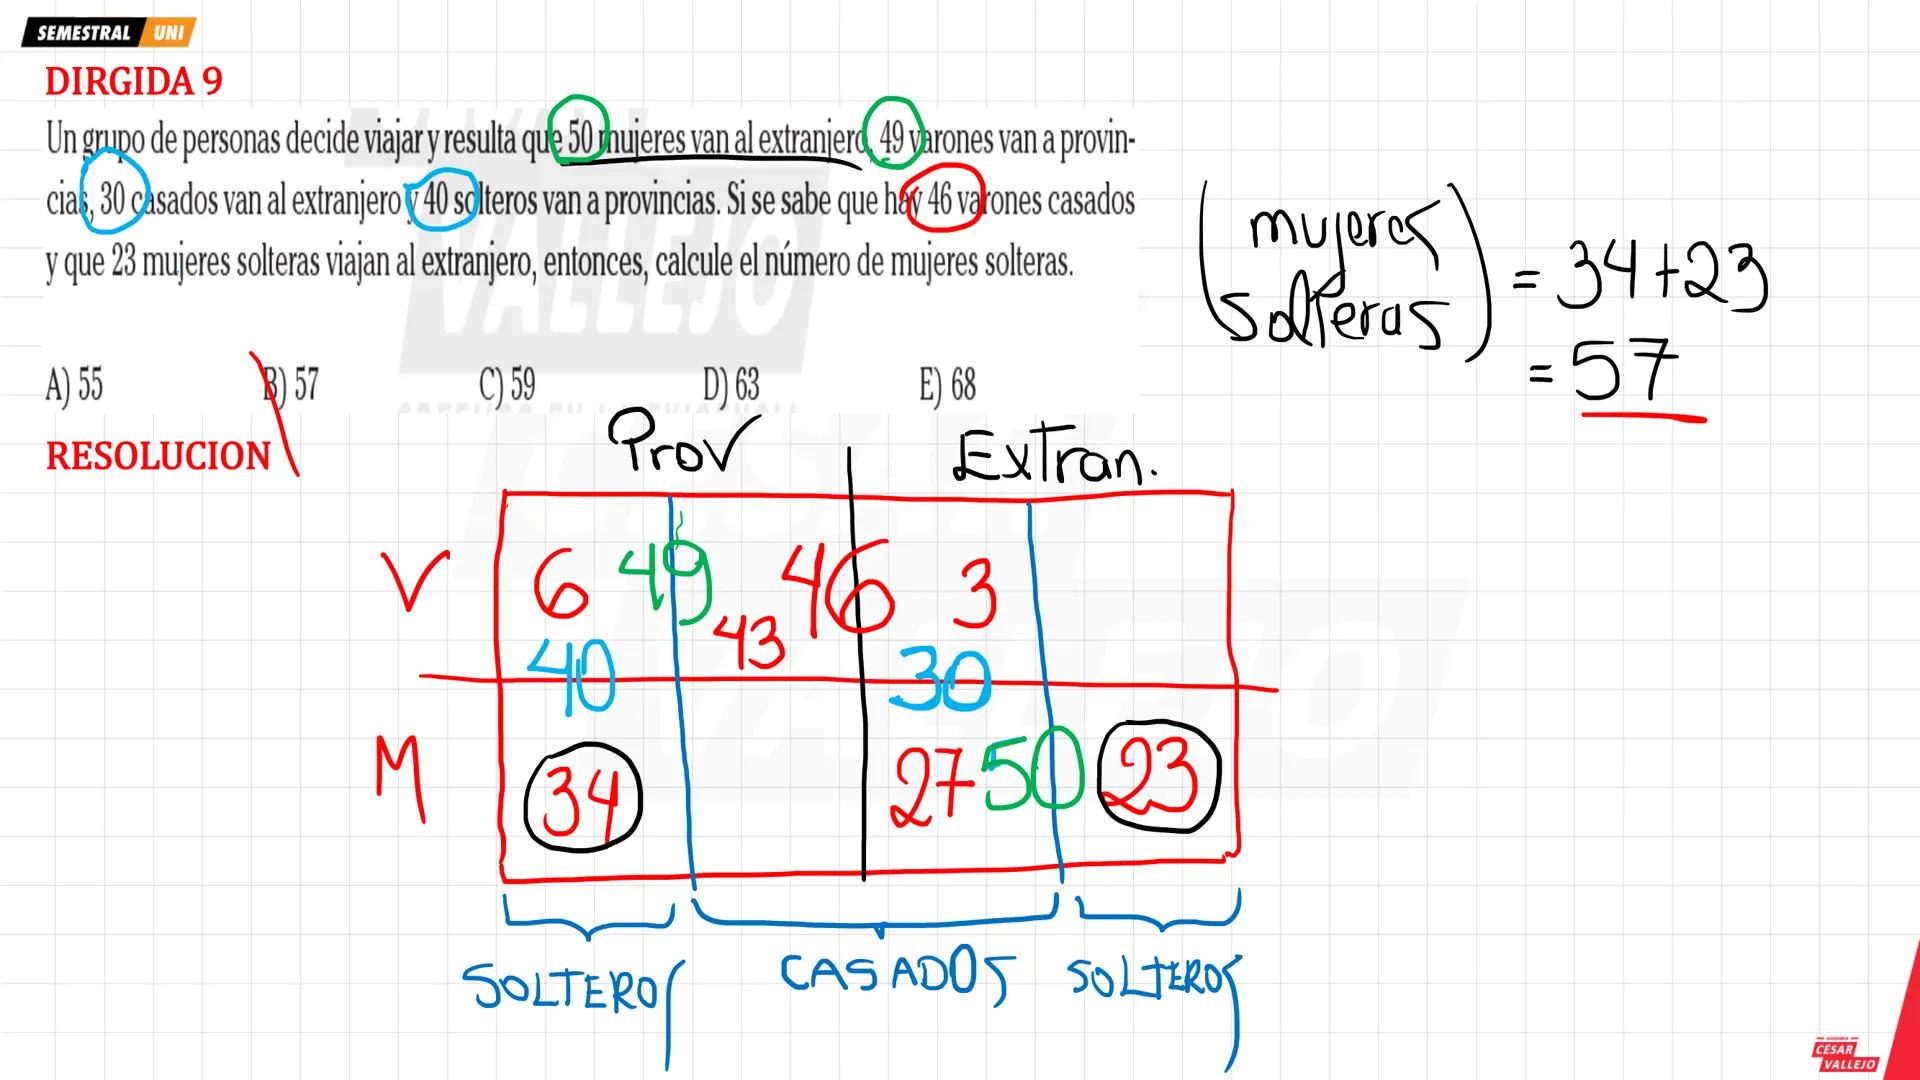 SEMESTRAL UNI
DIRGIDA 9
Un grupo de personas decide viajar y resulta que 50 mujeres van al extranjero, 49 varones van a provin-
cias, 30 casados van al extranjero y 40 solteros van a provincias. Si se sabe que hay 46 varones casados
y que 23 mujeres solteras viajan al extranjero, entonces, calcule el número de mujeres solteras.
A) 55 B) 57 C) 59 D) 63 E) 68
mujeres
solteras
= 34+23
= 57
RESOLUCION
Prov Extran.
V 6 49 43 46 3
40 30
M 34 27 50 23
SOLTEROS CASADOS SOLTEROS
ACADEMIA
CESAR
VALLEJO